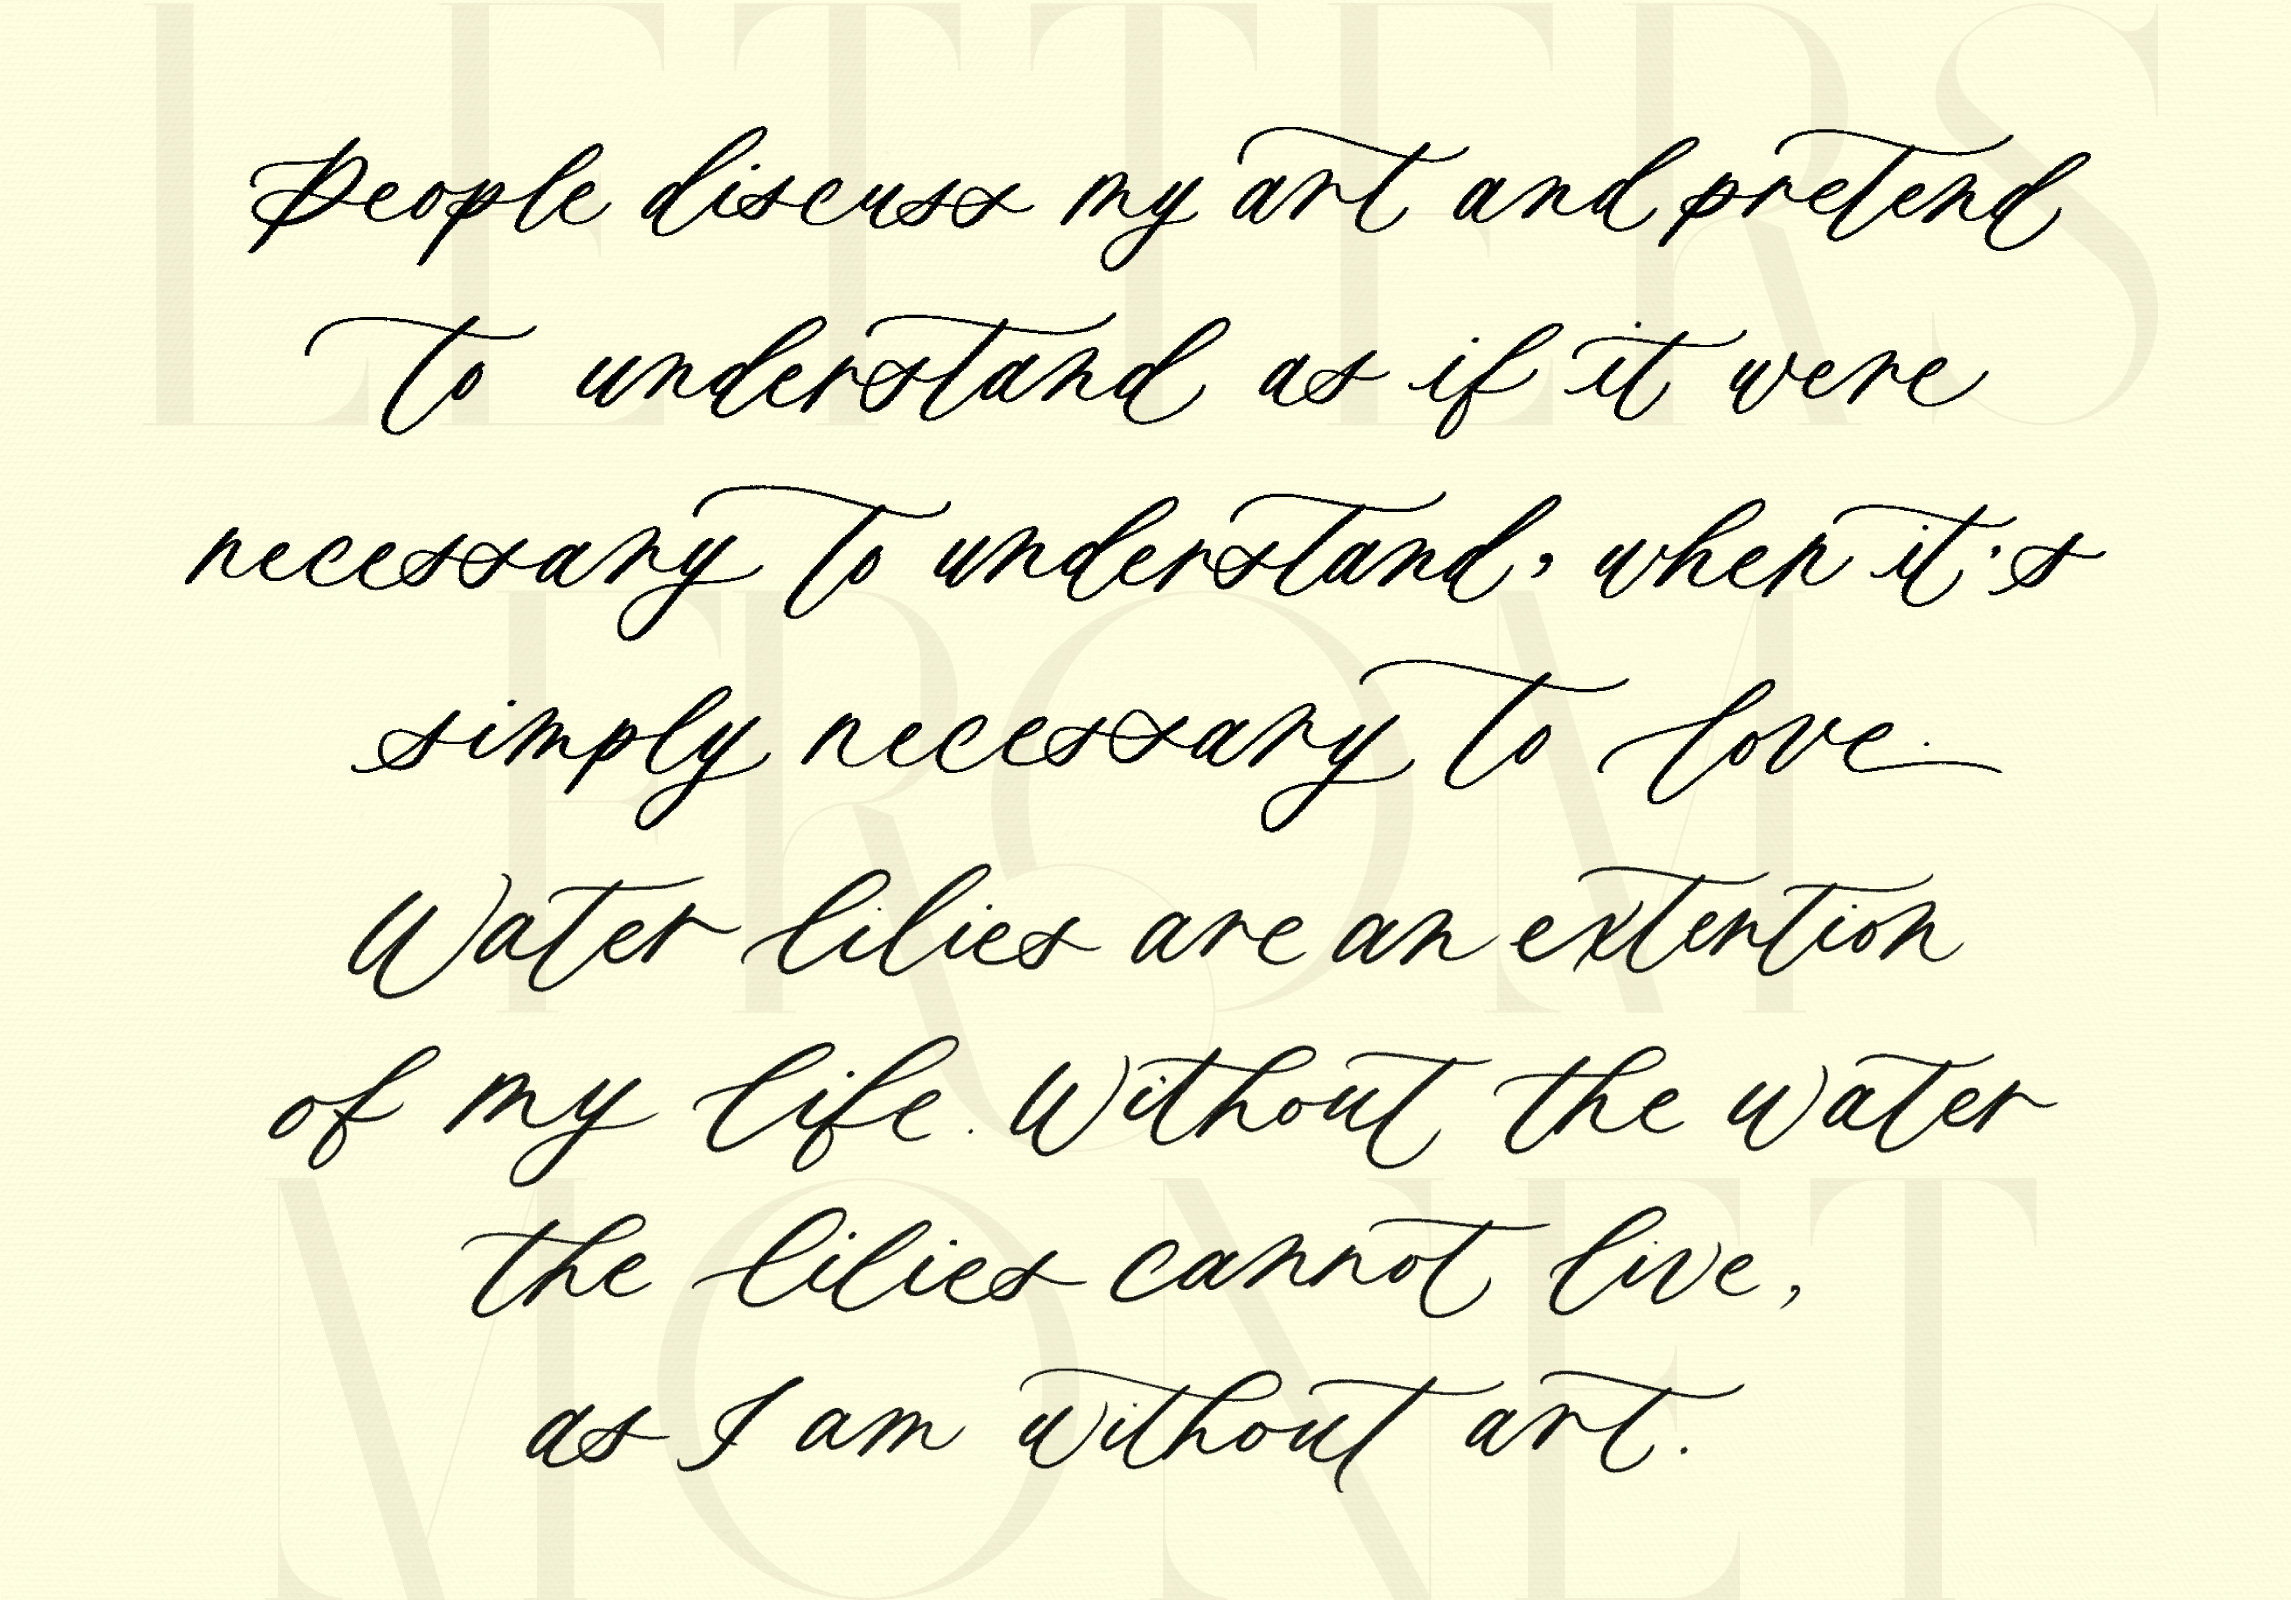 LETTERS
FROM
MONET
People discuss my art and pretend
to understand as if it were
necessary to understand, when it's
simply necessary to love.
Water lilies are an extention
of my life. Without the water
the lilies cannot live,
as I am without art.